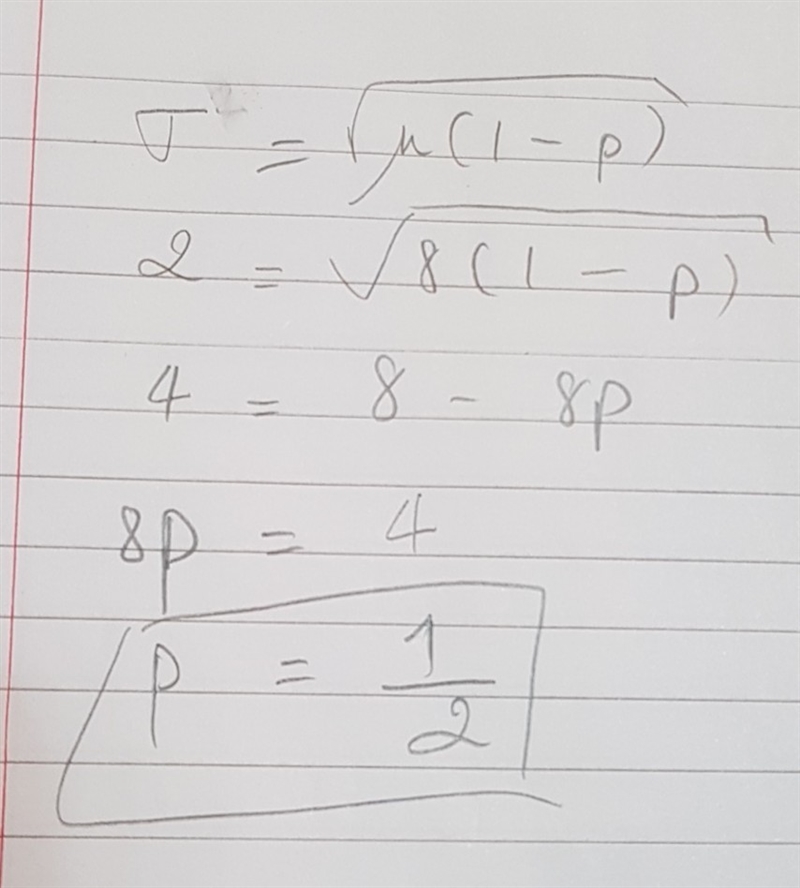 σ = √μ(1 - p)
2 = √8(1 - p)
4 = 8 - 8p
8p = 4
p = 1/2